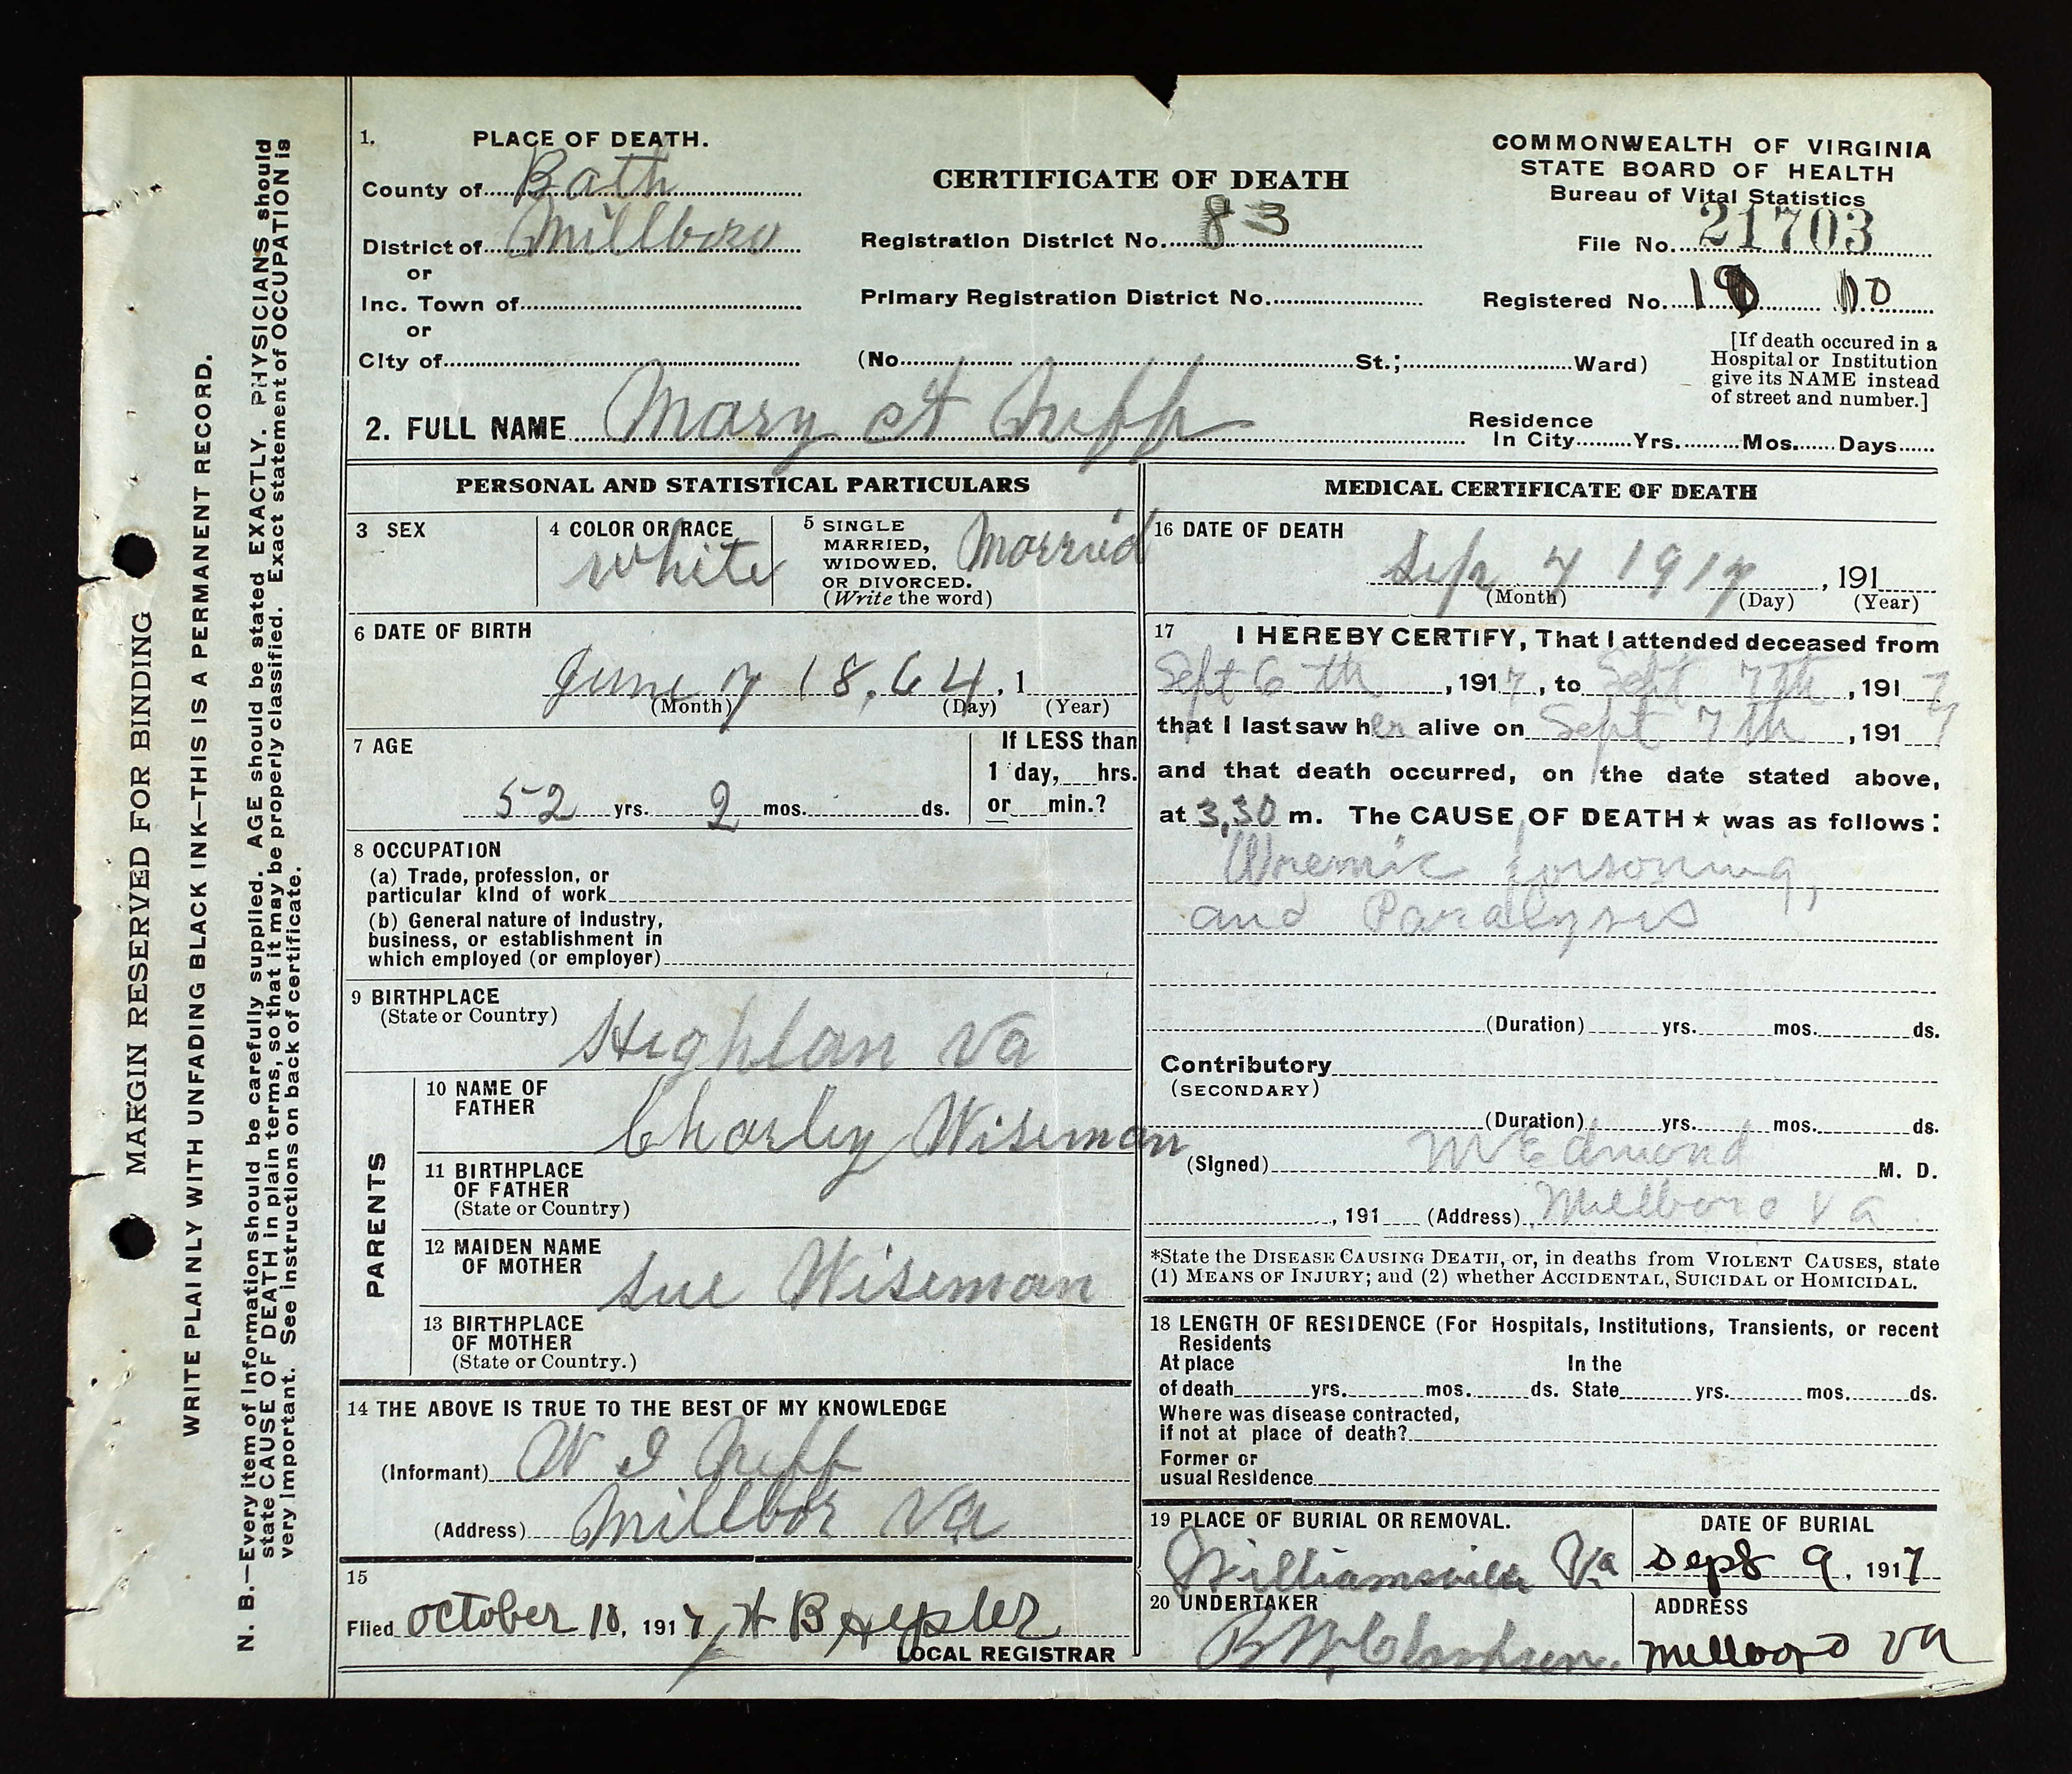 MARGIN RESERVED FOR BINDING
WRITE PLAINLY WITH UNFADING BLACK INK—THIS IS A PERMANENT RECORD.
N. B.—Every item of information should be carefully supplied. AGE should be stated EXACTLY. PHYSICIANS should
state CAUSE OF DEATH in plain terms, so that it may be properly classified. Exact statement of OCCUPATION is
very important. See instructions on back of certificate.
1. PLACE OF DEATH.
County of Bath
District of Millboro
or
Inc. Town of
or
City of
CERTIFICATE OF DEATH
Registration District No. 83
Primary Registration District No.
(No. St.; Ward)
COMMONWEALTH OF VIRGINIA
STATE BOARD OF HEALTH
Bureau of Vital Statistics
File No. 21703
Registered No. 10
[If death occured in a
Hospital or Institution
give its NAME instead
of street and number.]
2. FULL NAME Mary A Neff
Residence
In City Yrs. Mos. Days
PERSONAL AND STATISTICAL PARTICULARS
3 SEX
4 COLOR OR RACE
White
5 SINGLE
MARRIED,
WIDOWED,
OR DIVORCED.
(Write the word)
Married
6 DATE OF BIRTH
June 7 18.64, 1
(Month) (Day) (Year)
7 AGE
52 yrs. 2 mos. ds.
If LESS than
1 day, hrs.
or min.?
8 OCCUPATION
(a) Trade, profession, or
particular kind of work
(b) General nature of Industry,
business, or establishment in
which employed (or employer)
9 BIRTHPLACE
(State or Country)
Highlan Va
PARENTS
10 NAME OF
FATHER
Charley Wiseman
11 BIRTHPLACE
OF FATHER
(State or Country)
12 MAIDEN NAME
OF MOTHER
Sue Wiseman
13 BIRTHPLACE
OF MOTHER
(State or Country.)
14 THE ABOVE IS TRUE TO THE BEST OF MY KNOWLEDGE
(Informant) W I Neff
(Address) Millbor Va
15
Filed October 10, 1917 H B Hepler
LOCAL REGISTRAR
MEDICAL CERTIFICATE OF DEATH
16 DATE OF DEATH
Sep 7 1917, 191
(Month) (Day) (Year)
17 I HEREBY CERTIFY, That I attended deceased from
Sept 6th, 1917, to Sept 7th, 1917
that I last saw her alive on Sept 7th, 1917
and that death occurred, on the date stated above,
at 3,30 m. The CAUSE OF DEATH ★ was as follows:
Uremic poisoning,
and Paralysis
(Duration) yrs. mos. ds.
Contributory
(SECONDARY)
(Duration) yrs. mos. ds.
(Signed) M Edmond M. D.
, 191 (Address) Millboro Va
*State the DISEASE CAUSING DEATH, or, in deaths from VIOLENT CAUSES, state
(1) MEANS OF INJURY; and (2) whether ACCIDENTAL, SUICIDAL or HOMICIDAL.
18 LENGTH OF RESIDENCE (For Hospitals, Institutions, Transients, or recent
Residents
At place In the
of death yrs. mos. ds. State yrs. mos. ds.
Where was disease contracted,
if not at place of death?
Former or
usual Residence
19 PLACE OF BURIAL OR REMOVAL.
Williamsville Va
DATE OF BURIAL
Sept 9, 1917
20 UNDERTAKER
ADDRESS
Millboro Va